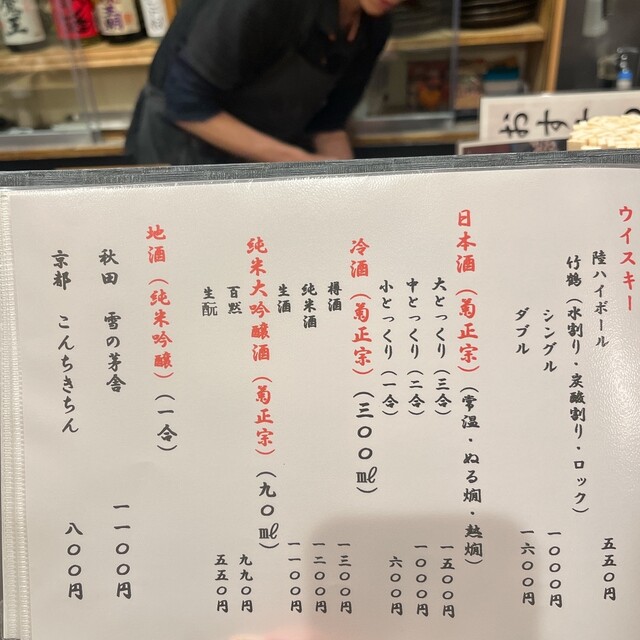 おすす
ウイスキー
陸ハイボール 五五〇円
竹鶴（水割り・炭酸割り・ロック）
シングル 一〇〇〇円
ダブル 一六〇〇円
日本酒（菊正宗）（常温・ぬる燗・熱燗）
大とっくり（三合） 一五〇〇円
中とっくり（二合） 一〇〇〇円
小とっくり（一合） 六〇〇円
冷酒（菊正宗）（三〇〇㎖）
樽酒 一三〇〇円
純米酒 一二〇〇円
生酒 一一〇〇円
純米大吟醸酒（菊正宗）（九〇㎖）
百黙 九九〇円
生酛 五五〇円
地酒（純米吟醸）（一合）
秋田 雪の茅舎 一一〇〇円
京都 こんちきちん 八〇〇円